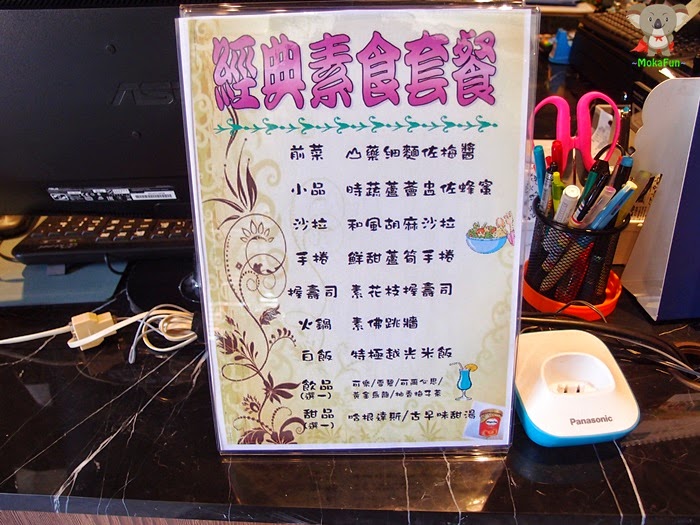 ~MokaFun~
經典素食套餐
前菜 山藥細麵佐梅醬
小品 時蔬蘆薈盅佐蜂蜜
沙拉 和風胡麻沙拉
手捲 鮮甜蘆筍手捲
握壽司 素花枝握壽司
火鍋 素佛跳牆
白飯 特極越光米飯
飲品 可樂/雪碧/可爾必思/
(選一) 黃金烏龍/柚香梅子茶
甜品 哈根達斯/古早味甜湯
(選一)
Panasonic